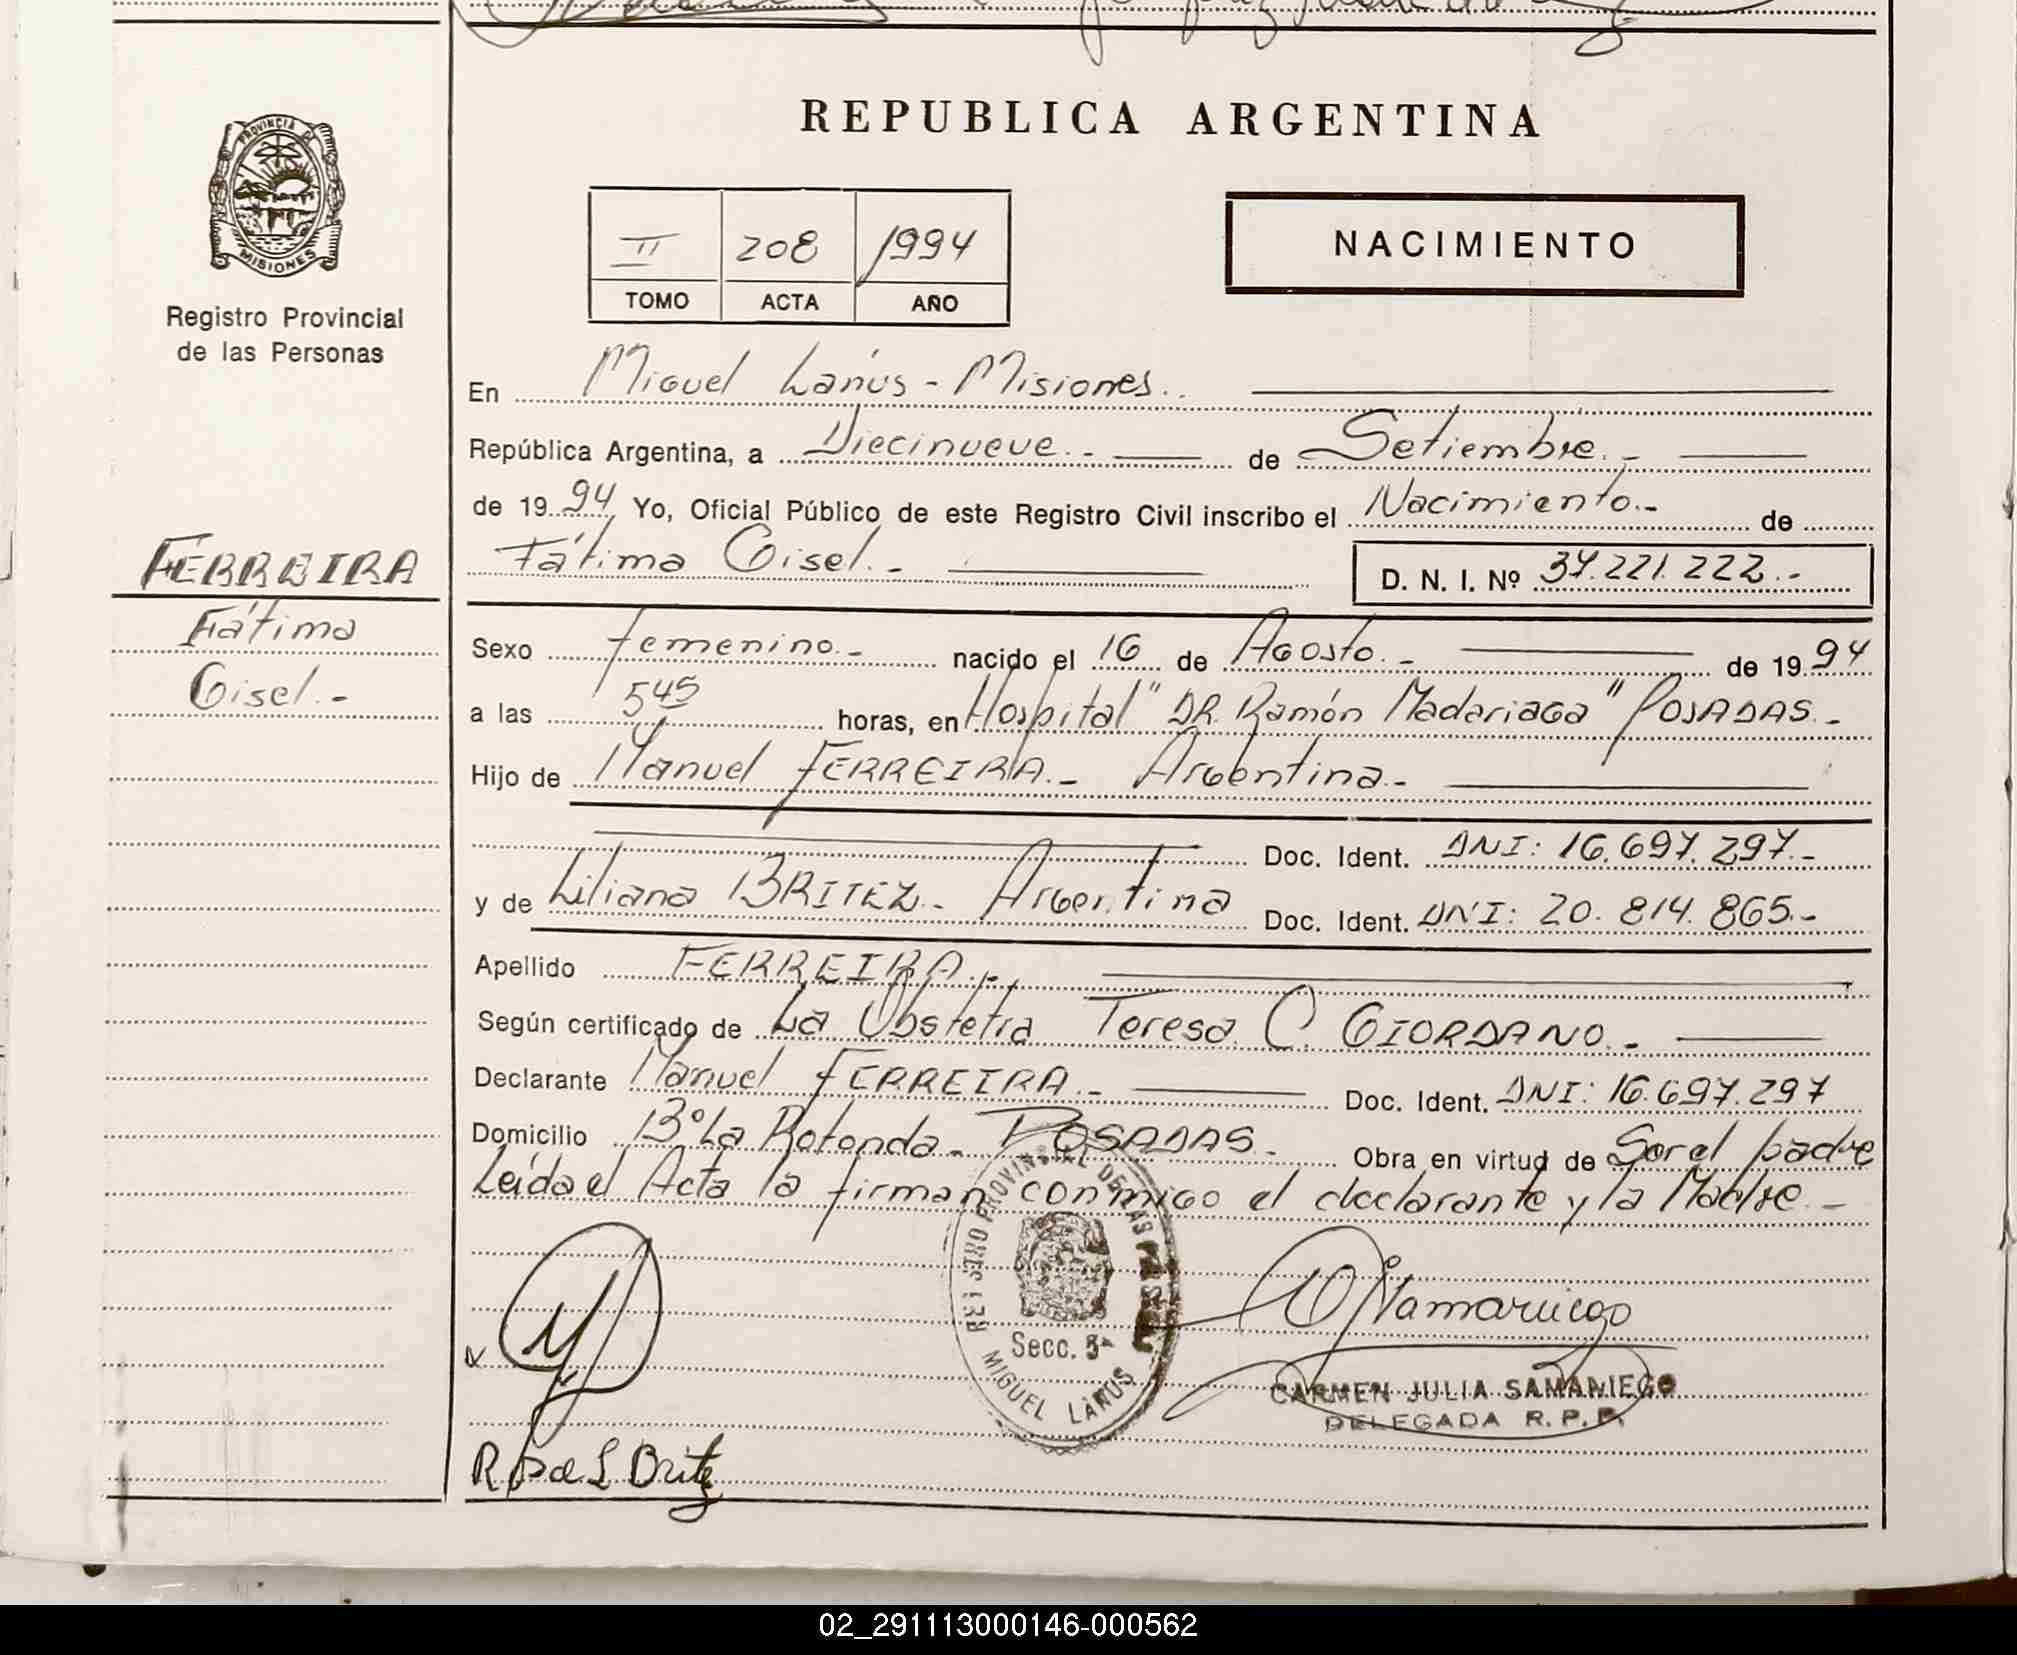 REPUBLICA ARGENTINA
PROVINCIA DE
MISIONES
Registro Provincial
de las Personas
II 208 1994
TOMO ACTA AÑO
NACIMIENTO
En Miguel Lanús - Misiones.
República Argentina, a Diecinueve.- de Setiembre.-
de 1994 Yo, Oficial Público de este Registro Civil inscribo el Nacimiento.- de
Fátima Gisel.- D. N. I. Nº 37.221.222.-
FERREIRA
Fátima
Gisel.-
Sexo femenino.- nacido el 16 de Agosto.- de 1994
a las 5 45 horas, en Hospital "DR. Ramón Madariaga" POSADAS.-
Hijo de Manuel FERREIRA.- Argentina.-
Doc. Ident. DNI: 16.697.297.-
y de Liliana BRITEZ.- Argentina Doc. Ident. DNI: 20.814.865.-
Apellido FERREIRA.-
Según certificado de La Obstetra Teresa C. GIORDANO.-
Declarante Manuel FERREIRA.- Doc. Ident. DNI: 16.697.297
Domicilio Bº La Rotonda- POSADAS.- Obra en virtud de Ser el padre
Leída el Acta la firman conmigo el declarante y la Madre.-
REGISTRO PROVINCIAL DE LAS
Secc. 5ª
MIGUEL LANUS
CARMEN JULIA SAMANIEGO
DELEGADA R. P. P.
Rosa L Britez
02_291113000146-000562